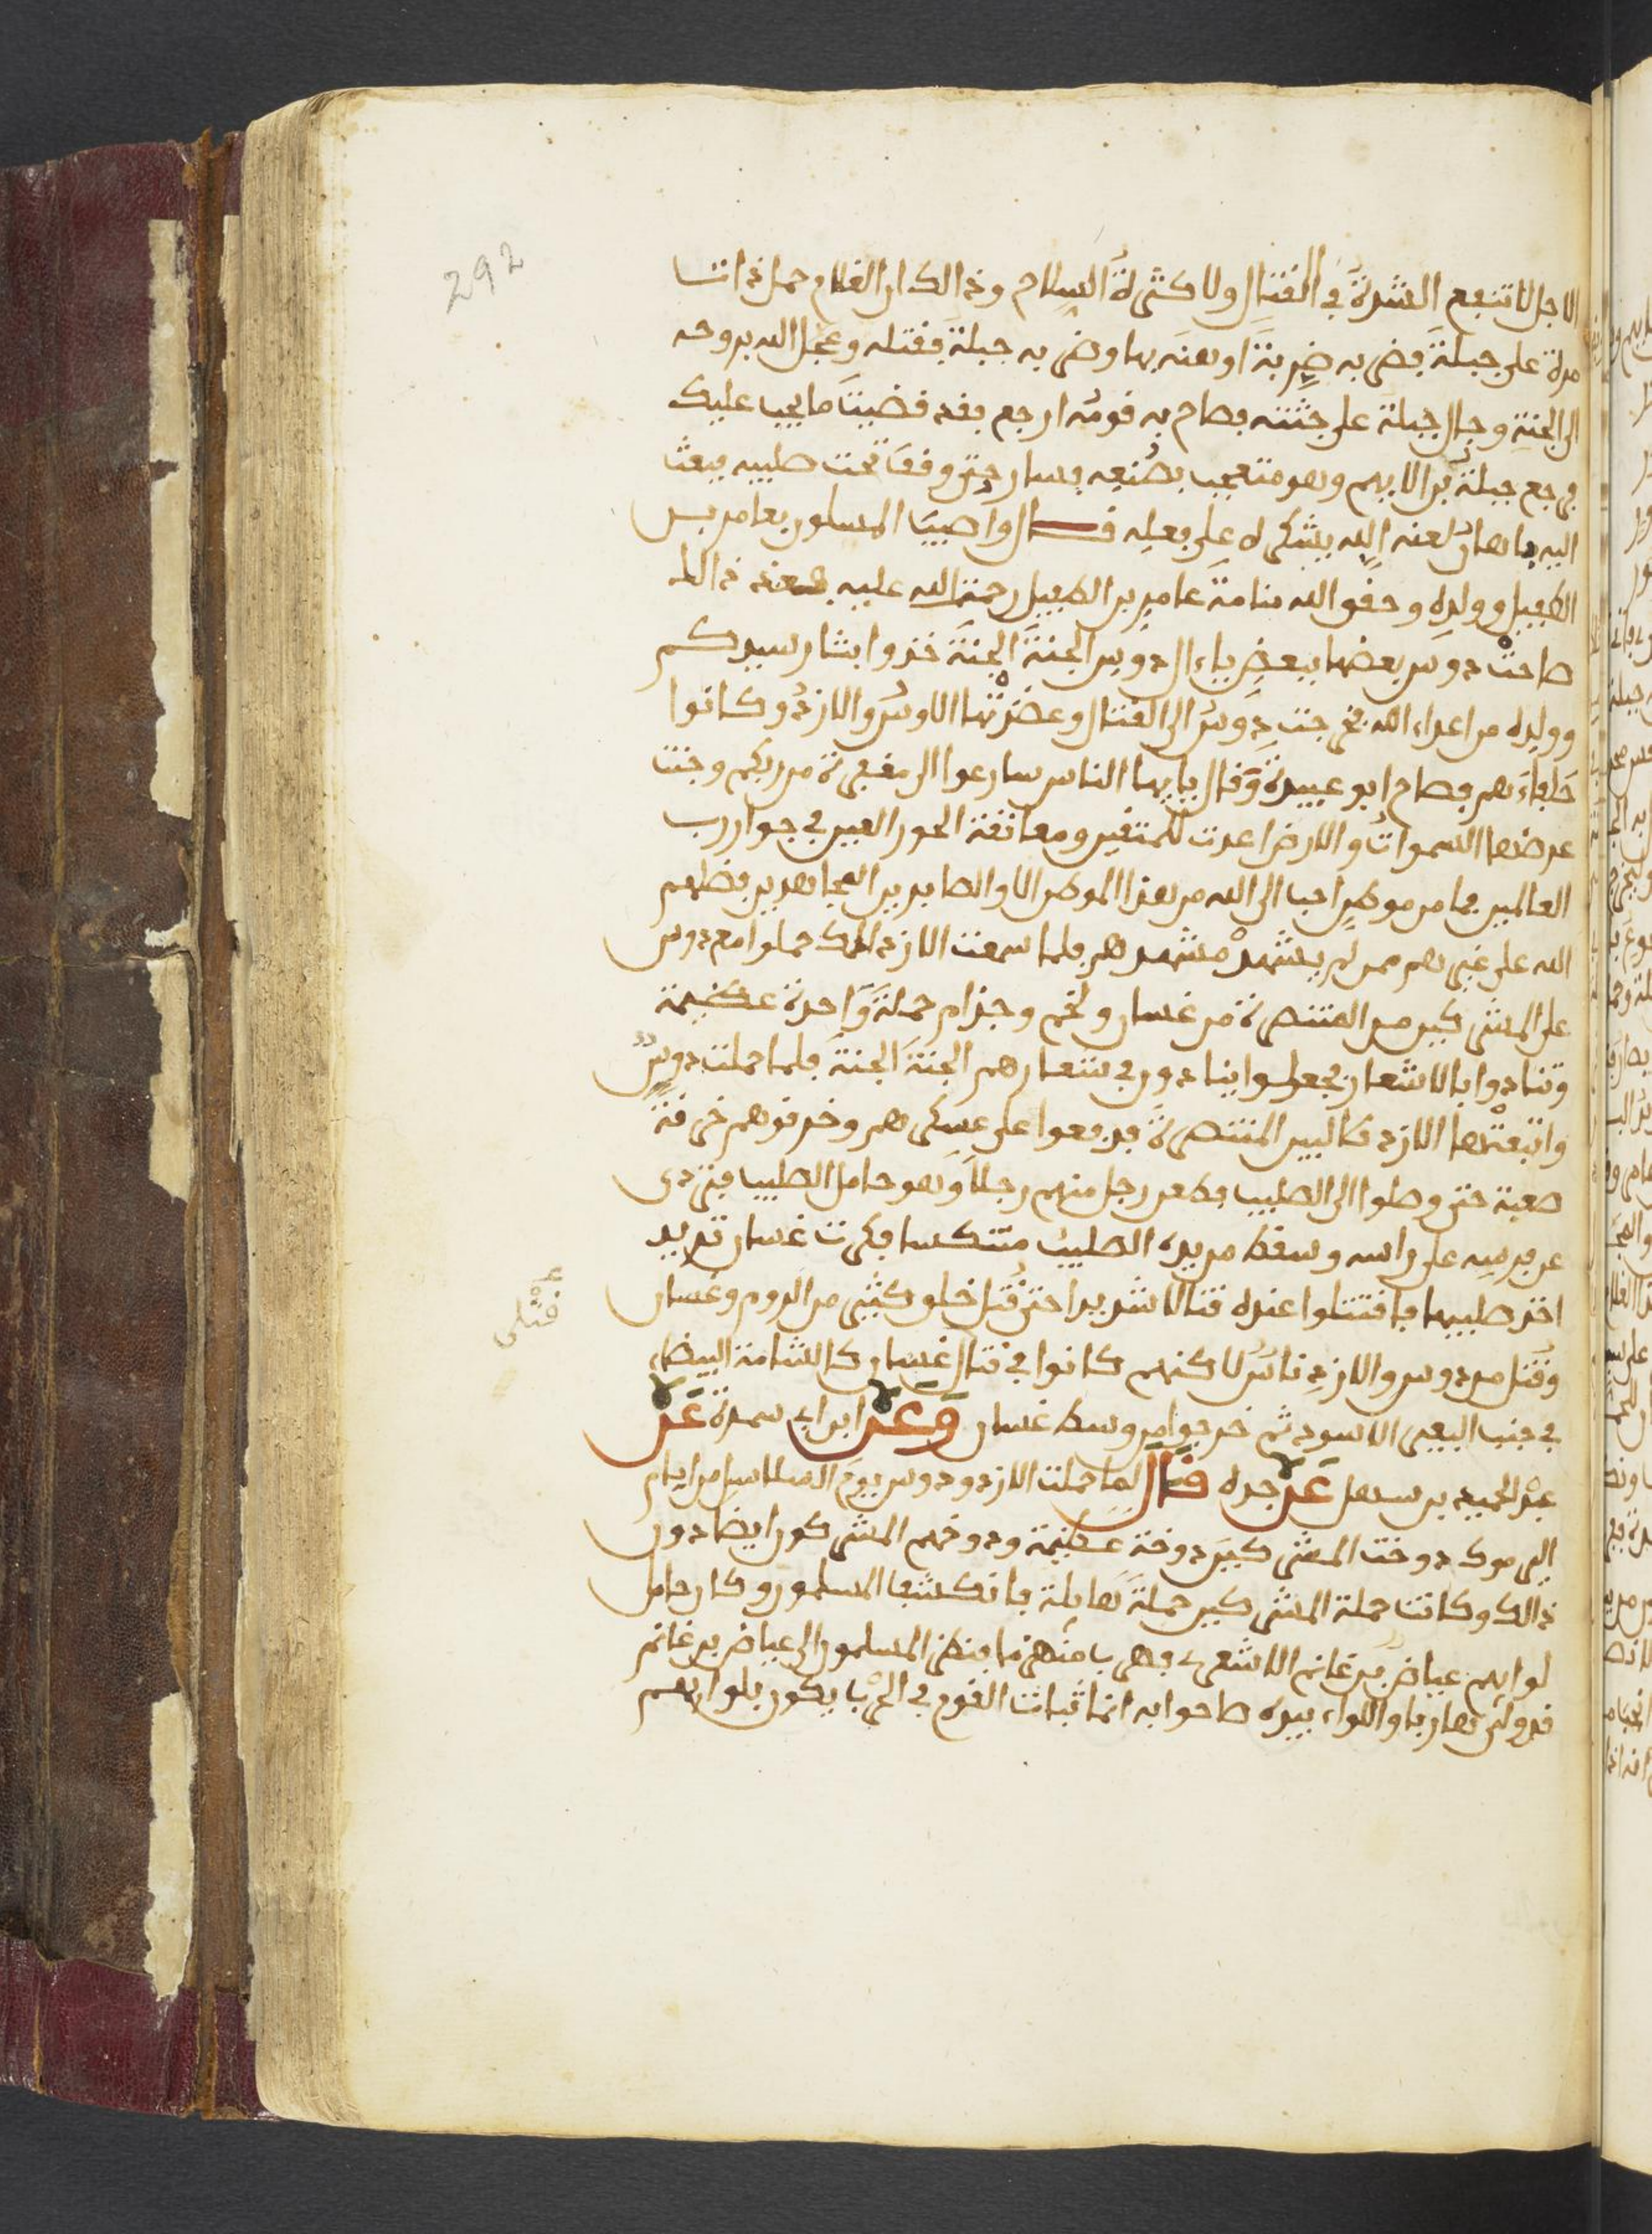 292
الاجل لا تنفع الشدة في القتال ولا كثرة السلاح وذالك ان الغلام حمل ذات
مرة على جبلة فضربه ضربة اوهنه بها وضربه جبلة فقتله وعجل الله بروحه
الى الجنة وجال جبلة على جثته فصاح به قومه ارجع فقد قضيت ما يجب عليك
فرجع جبلة بن الايهم وهو متعجب بصنعه فسار حتى وقف تحت صليبه فبعث
اليه باهان لعنه الله يشكره على فعله قال واصيب المسلمون بعامر بن
الطفيل وولده وحقق الله منامة عامر بن الطفيل رحمت الله عليه فعند ذالك
صاحت دوس بعضها ببعض يا ءال دوس الجنة الجنة خذوا بثار سيدكم
وولده من اعداء الله فخرجت دوس الى القتال وعضدتها الاوس والازد وكانوا
حلفاءهم فصاح ابو عبيدة وقال يايها الناس سارعوا الى مغفرة من ربكم وجنت
عرضها السموات والارض اعدت للمتقين ومعانقة الحور العين في جوار رب
العالمين فما من موطن احب الى الله من هذا الموطن الا والصابرين المجاهدين فضلهم
الله على غيرهم ممن لم يشهد مشهدهم فلما سمعت الازد ذلك حملوا مع دوس
على المشركين من المتنصرة من غسان ولخم وجذام حملة واحدة عظيمة
وتنادوا بالاشعار فجعلوا ينادون في شعارهم الجنة الجنة فلما حملت دوس
واتبعتها الازد طالبين المتنصرة فدفعوا على عسكرهم وخرقوهم خرقة
صعبة حتى وصلوا الى الصليب فطعن رجل منهم رجلا وهو حامل الصليب فتردى
عن فرسه على راسه وسقط من يده الصليب متنكسا فكرت غسان تريد
اخذ صليبها فاقتتلوا عنده قتالا شديدا حتى قتل خلق كثير من الروم وغسان
وقتل من دوس والازد ناس لاكنهم كانوا في قتال غسان كالشامة البيضاء
في جنب البعير الاسود ثم خرجوا من وسط غسان وعن ابن ابي سمرة عن
عبد الحميد بن سهل عن جده قال لما حملت الازد ودوس يوم السلاسل من ايام
اليرموك دوخت المشركين دوخة عظيمة ودوخهم المشركون ايضا دون
ذالك وكانت حملة المشركين حملة هايلة فانكشف المسلمون وكان حامل
لوايهم عياض بن غانم الاشعري فهرب منهزما فنظر المسلمون الى عياض بن غانم
قد ولى هاربا واللواء بيده صاحوا به انما ثبات القوم في الحرب يكون بلوايهم
قتلى